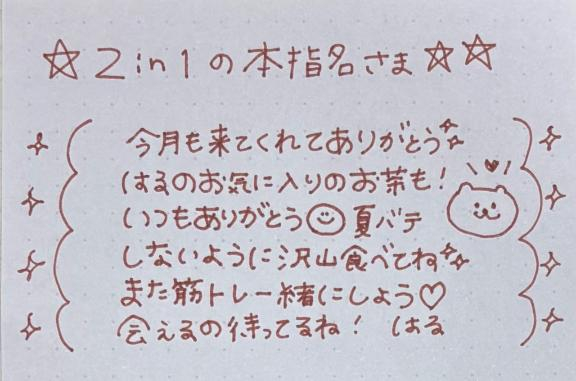 ☆2in1の本指名さま☆☆
今月も来てくれてありがとう
はるのお気に入りのお茶も!
いつもありがとう☺夏バテ
しないように沢山食べてね
また筋トレ一緒にしよう♡
会えるの待ってるね! はる